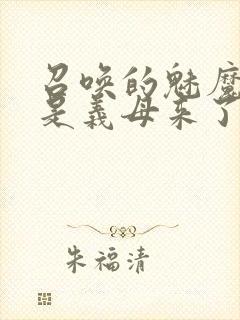 召唤的魅魔
是义母来了
朱福清